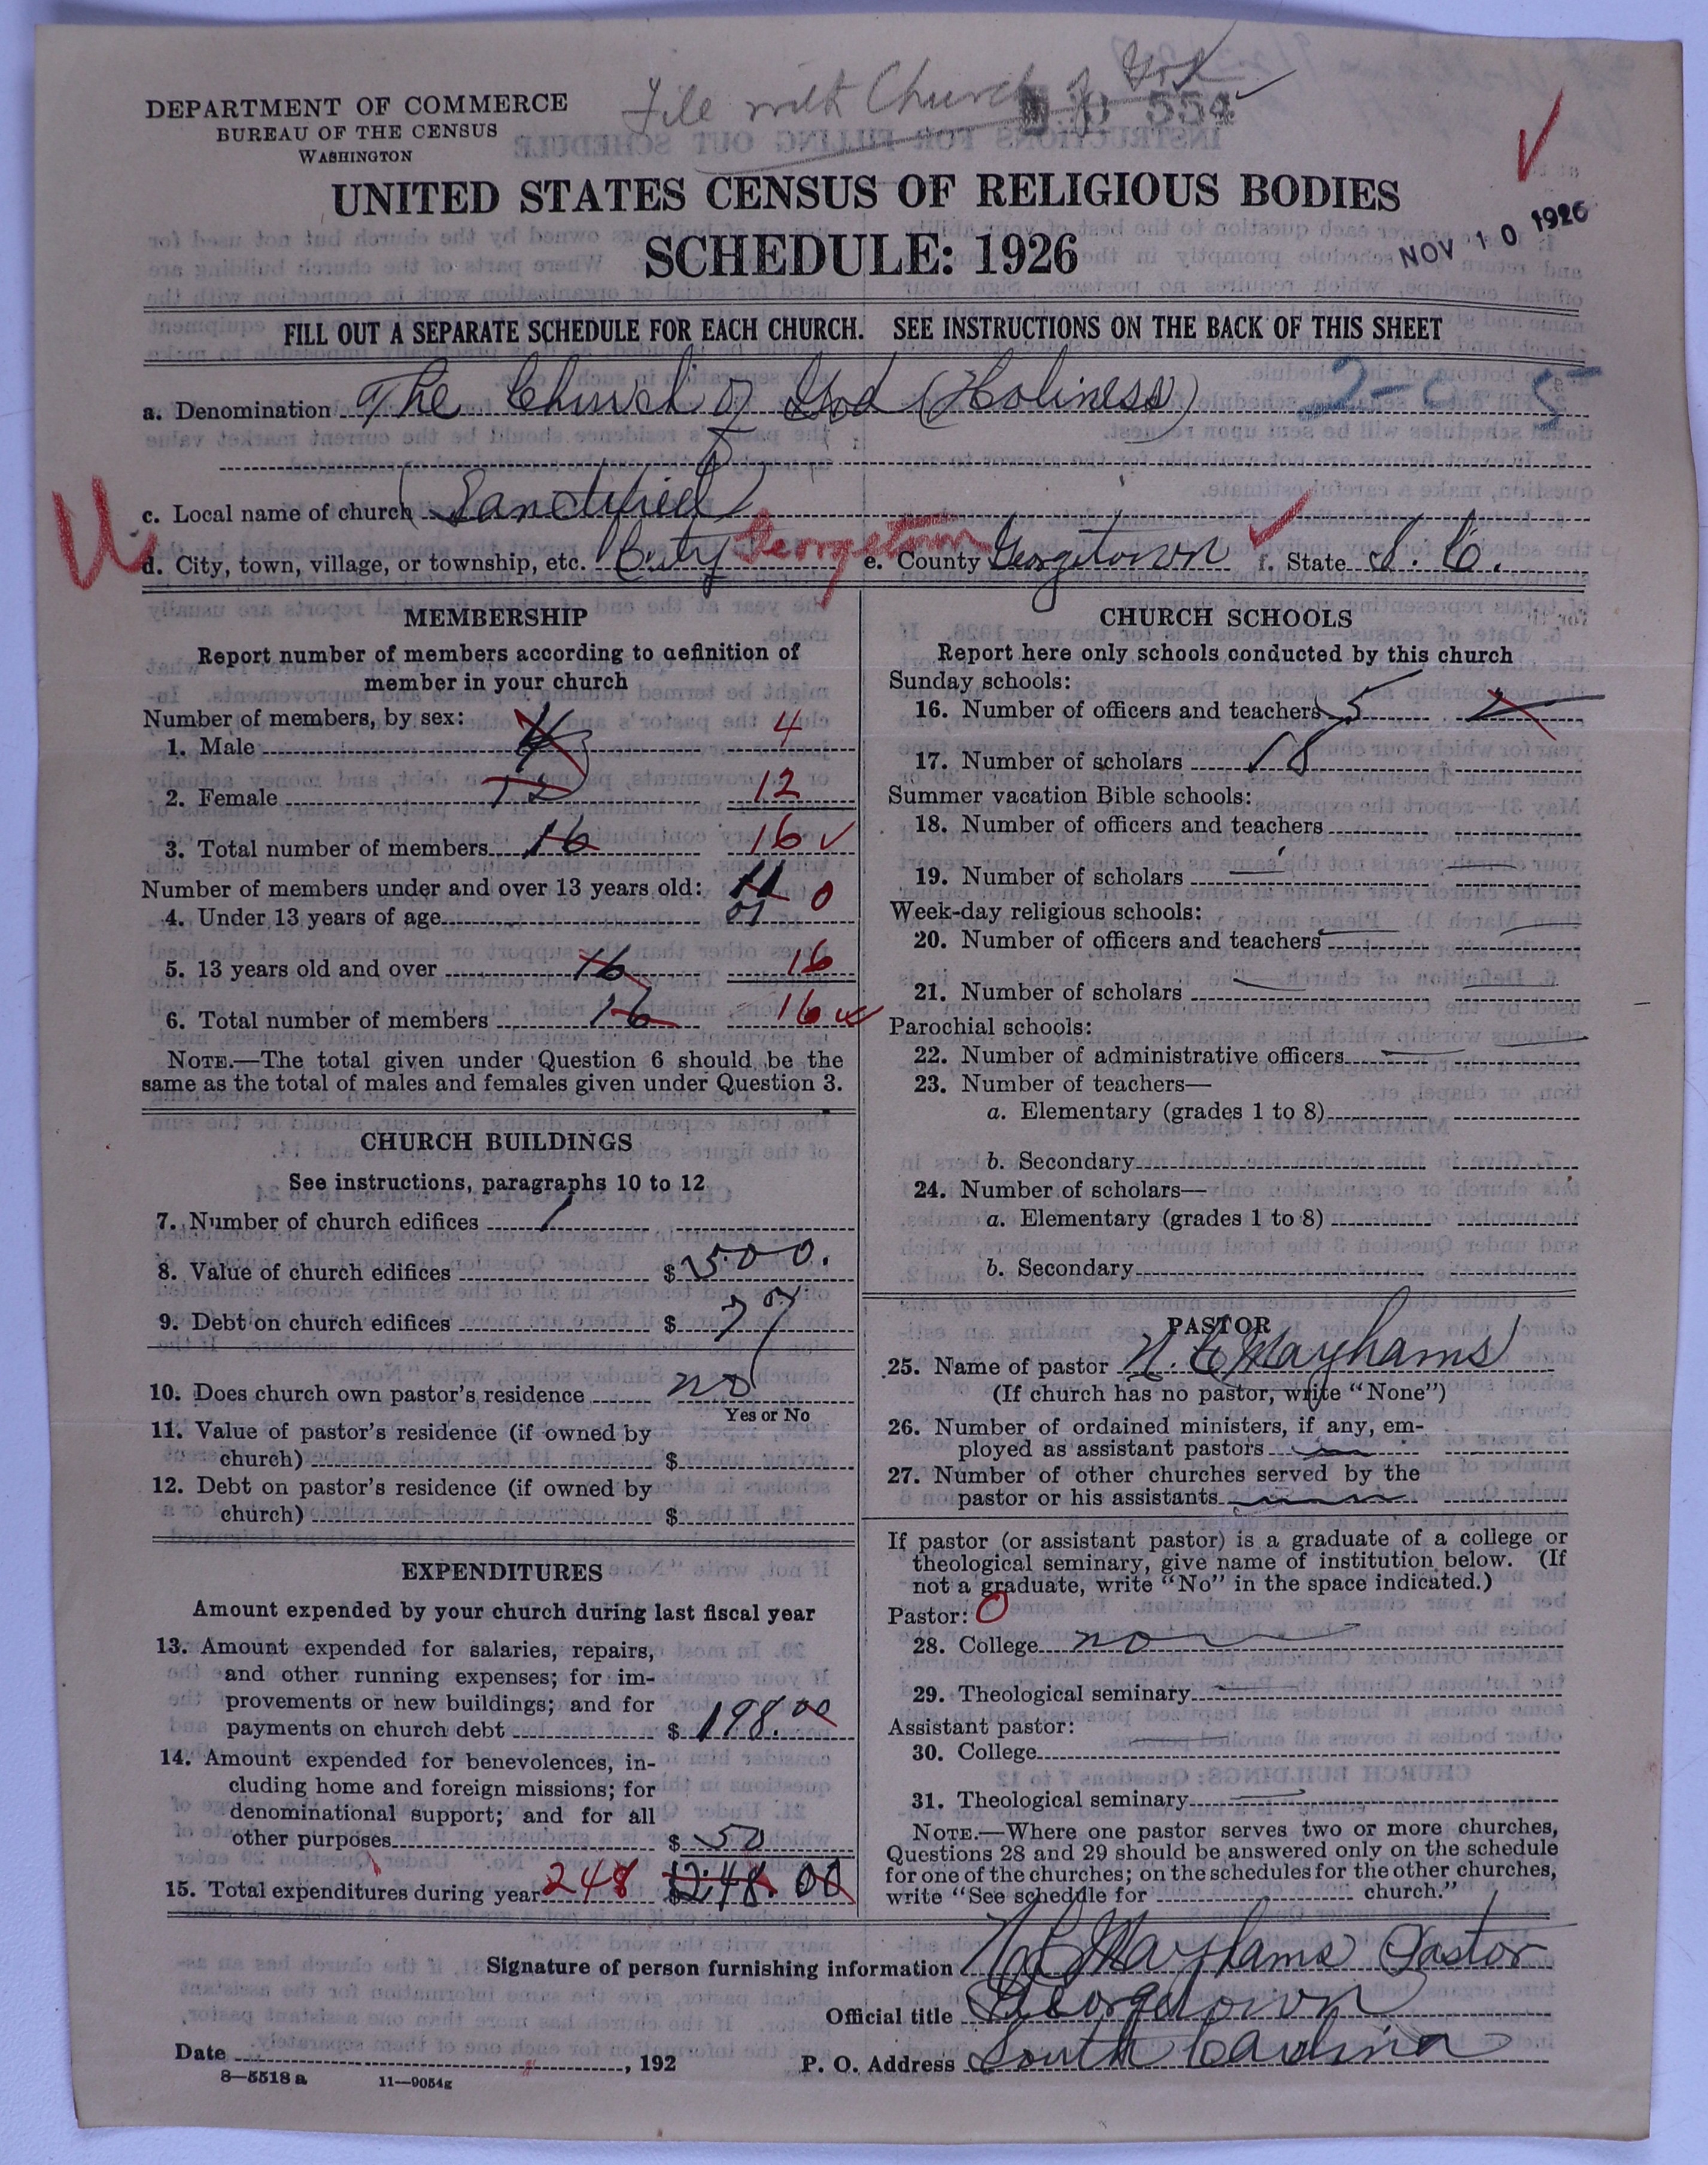 File with Church of God
554
DEPARTMENT OF COMMERCE
BUREAU OF THE CENSUS
WASHINGTON
UNITED STATES CENSUS OF RELIGIOUS BODIES
SCHEDULE: 1926
NOV 10 1926
FILL OUT A SEPARATE SCHEDULE FOR EACH CHURCH. SEE INSTRUCTIONS ON THE BACK OF THIS SHEET
a. Denomination The Church of God (Holiness) 2-0 5
c. Local name of church (Sanctified)
d. City, town, village, or township, etc. City Georgetown e. County Georgetown f. State S. C.
MEMBERSHIP
Report number of members according to definition of
member in your church
Number of members, by sex:
1. Male 4 4
2. Female 12 12
3. Total number of members 16 16
Number of members under and over 13 years old:
4. Under 13 years of age 0
5. 13 years old and over 16 16
6. Total number of members 16 16
NOTE.—The total given under Question 6 should be the
same as the total of males and females given under Question 3.
CHURCH BUILDINGS
See instructions, paragraphs 10 to 12
7. Number of church edifices 1
8. Value of church edifices $ 500.
9. Debt on church edifices $
10. Does church own pastor's residence no
Yes or No
11. Value of pastor's residence (if owned by
church) $
12. Debt on pastor's residence (if owned by
church) $
EXPENDITURES
Amount expended by your church during last fiscal year
13. Amount expended for salaries, repairs,
and other running expenses; for im-
provements or new buildings; and for
payments on church debt $ 198.00
14. Amount expended for benevolences, in-
cluding home and foreign missions; for
denominational support; and for all
other purposes $ 50
15. Total expenditures during year 248 $248.00
CHURCH SCHOOLS
Report here only schools conducted by this church
Sunday schools:
16. Number of officers and teachers 5
17. Number of scholars 18
Summer vacation Bible schools:
18. Number of officers and teachers
19. Number of scholars
Week-day religious schools:
20. Number of officers and teachers
21. Number of scholars
Parochial schools:
22. Number of administrative officers
23. Number of teachers—
a. Elementary (grades 1 to 8)
b. Secondary
24. Number of scholars—
a. Elementary (grades 1 to 8)
b. Secondary
PASTOR
25. Name of pastor N. C. Mayhams
(If church has no pastor, write "None")
26. Number of ordained ministers, if any, em-
ployed as assistant pastors
27. Number of other churches served by the
pastor or his assistants
If pastor (or assistant pastor) is a graduate of a college or
theological seminary, give name of institution below. (If
not a graduate, write "No" in the space indicated.)
Pastor: 0
28. College no
29. Theological seminary
Assistant pastor:
30. College
31. Theological seminary
NOTE.—Where one pastor serves two or more churches,
Questions 28 and 29 should be answered only on the schedule
for one of the churches; on the schedules for the other churches,
write "See schedule for church."
Signature of person furnishing information N C Mayhams Pastor
Official title Georgetown
Date , 192 P. O. Address South Carolina
8—5518 a 11—9054g